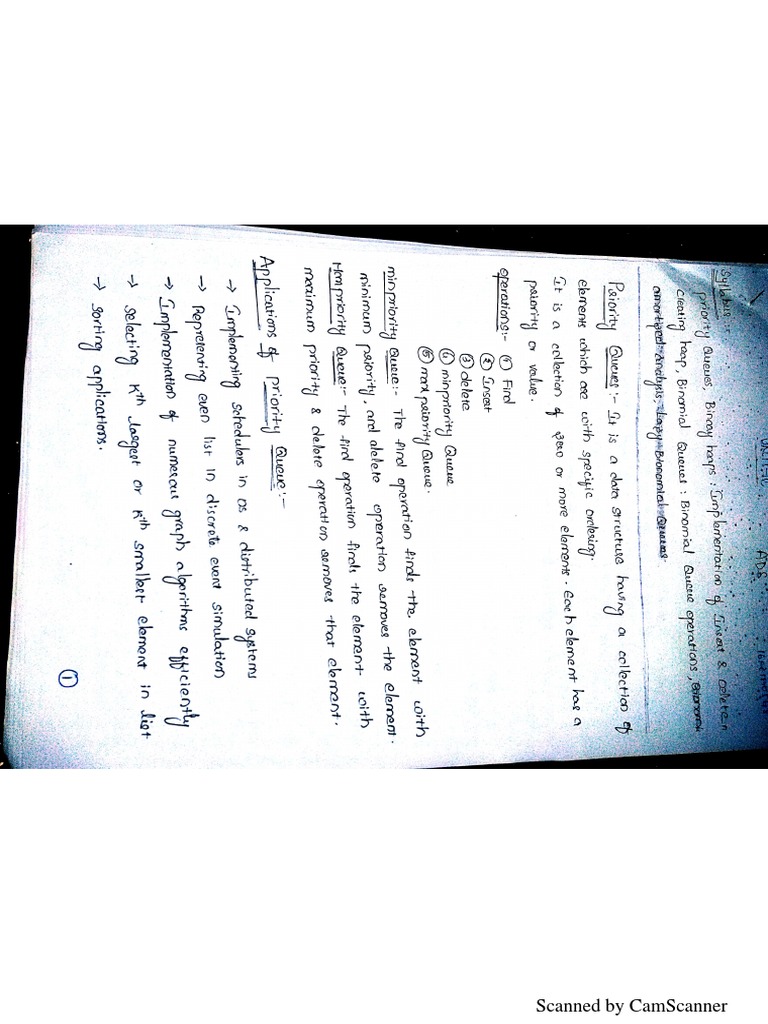 ADS
Syllabus:-
priority Queues, Binary heaps: Implementation of Insert & delete
creating heap, Binomial Queues: Binomial Queue operations, Binomial
amortized Analysis, Lazy Binomial Queues.
Priority Queues:- It is a data structure having a collection of
elements which are with specific ordering.
It is a collection of zero or more elements. Each element has a
priority or value.
operations:- ① Find
② Insert
③ delete
④ minpriority Queue
⑤ max priority Queue.
minpriority Queue:- The find operation finds the element with
minimum priority, and delete operation removes the element.
priority Queue:- The find operation finds the element with
maximum priority & delete operation removes that element.
Applications of priority Queue:-
→ Implemening schedulers in OS & distributed systems
→ Representing even list in discrete event simulation
→ Implementation of numerous graph algorithms efficiently
→ selecting Kth largest or Kth smallest element in list
→ sorting applications.
①
Scanned by CamScanner